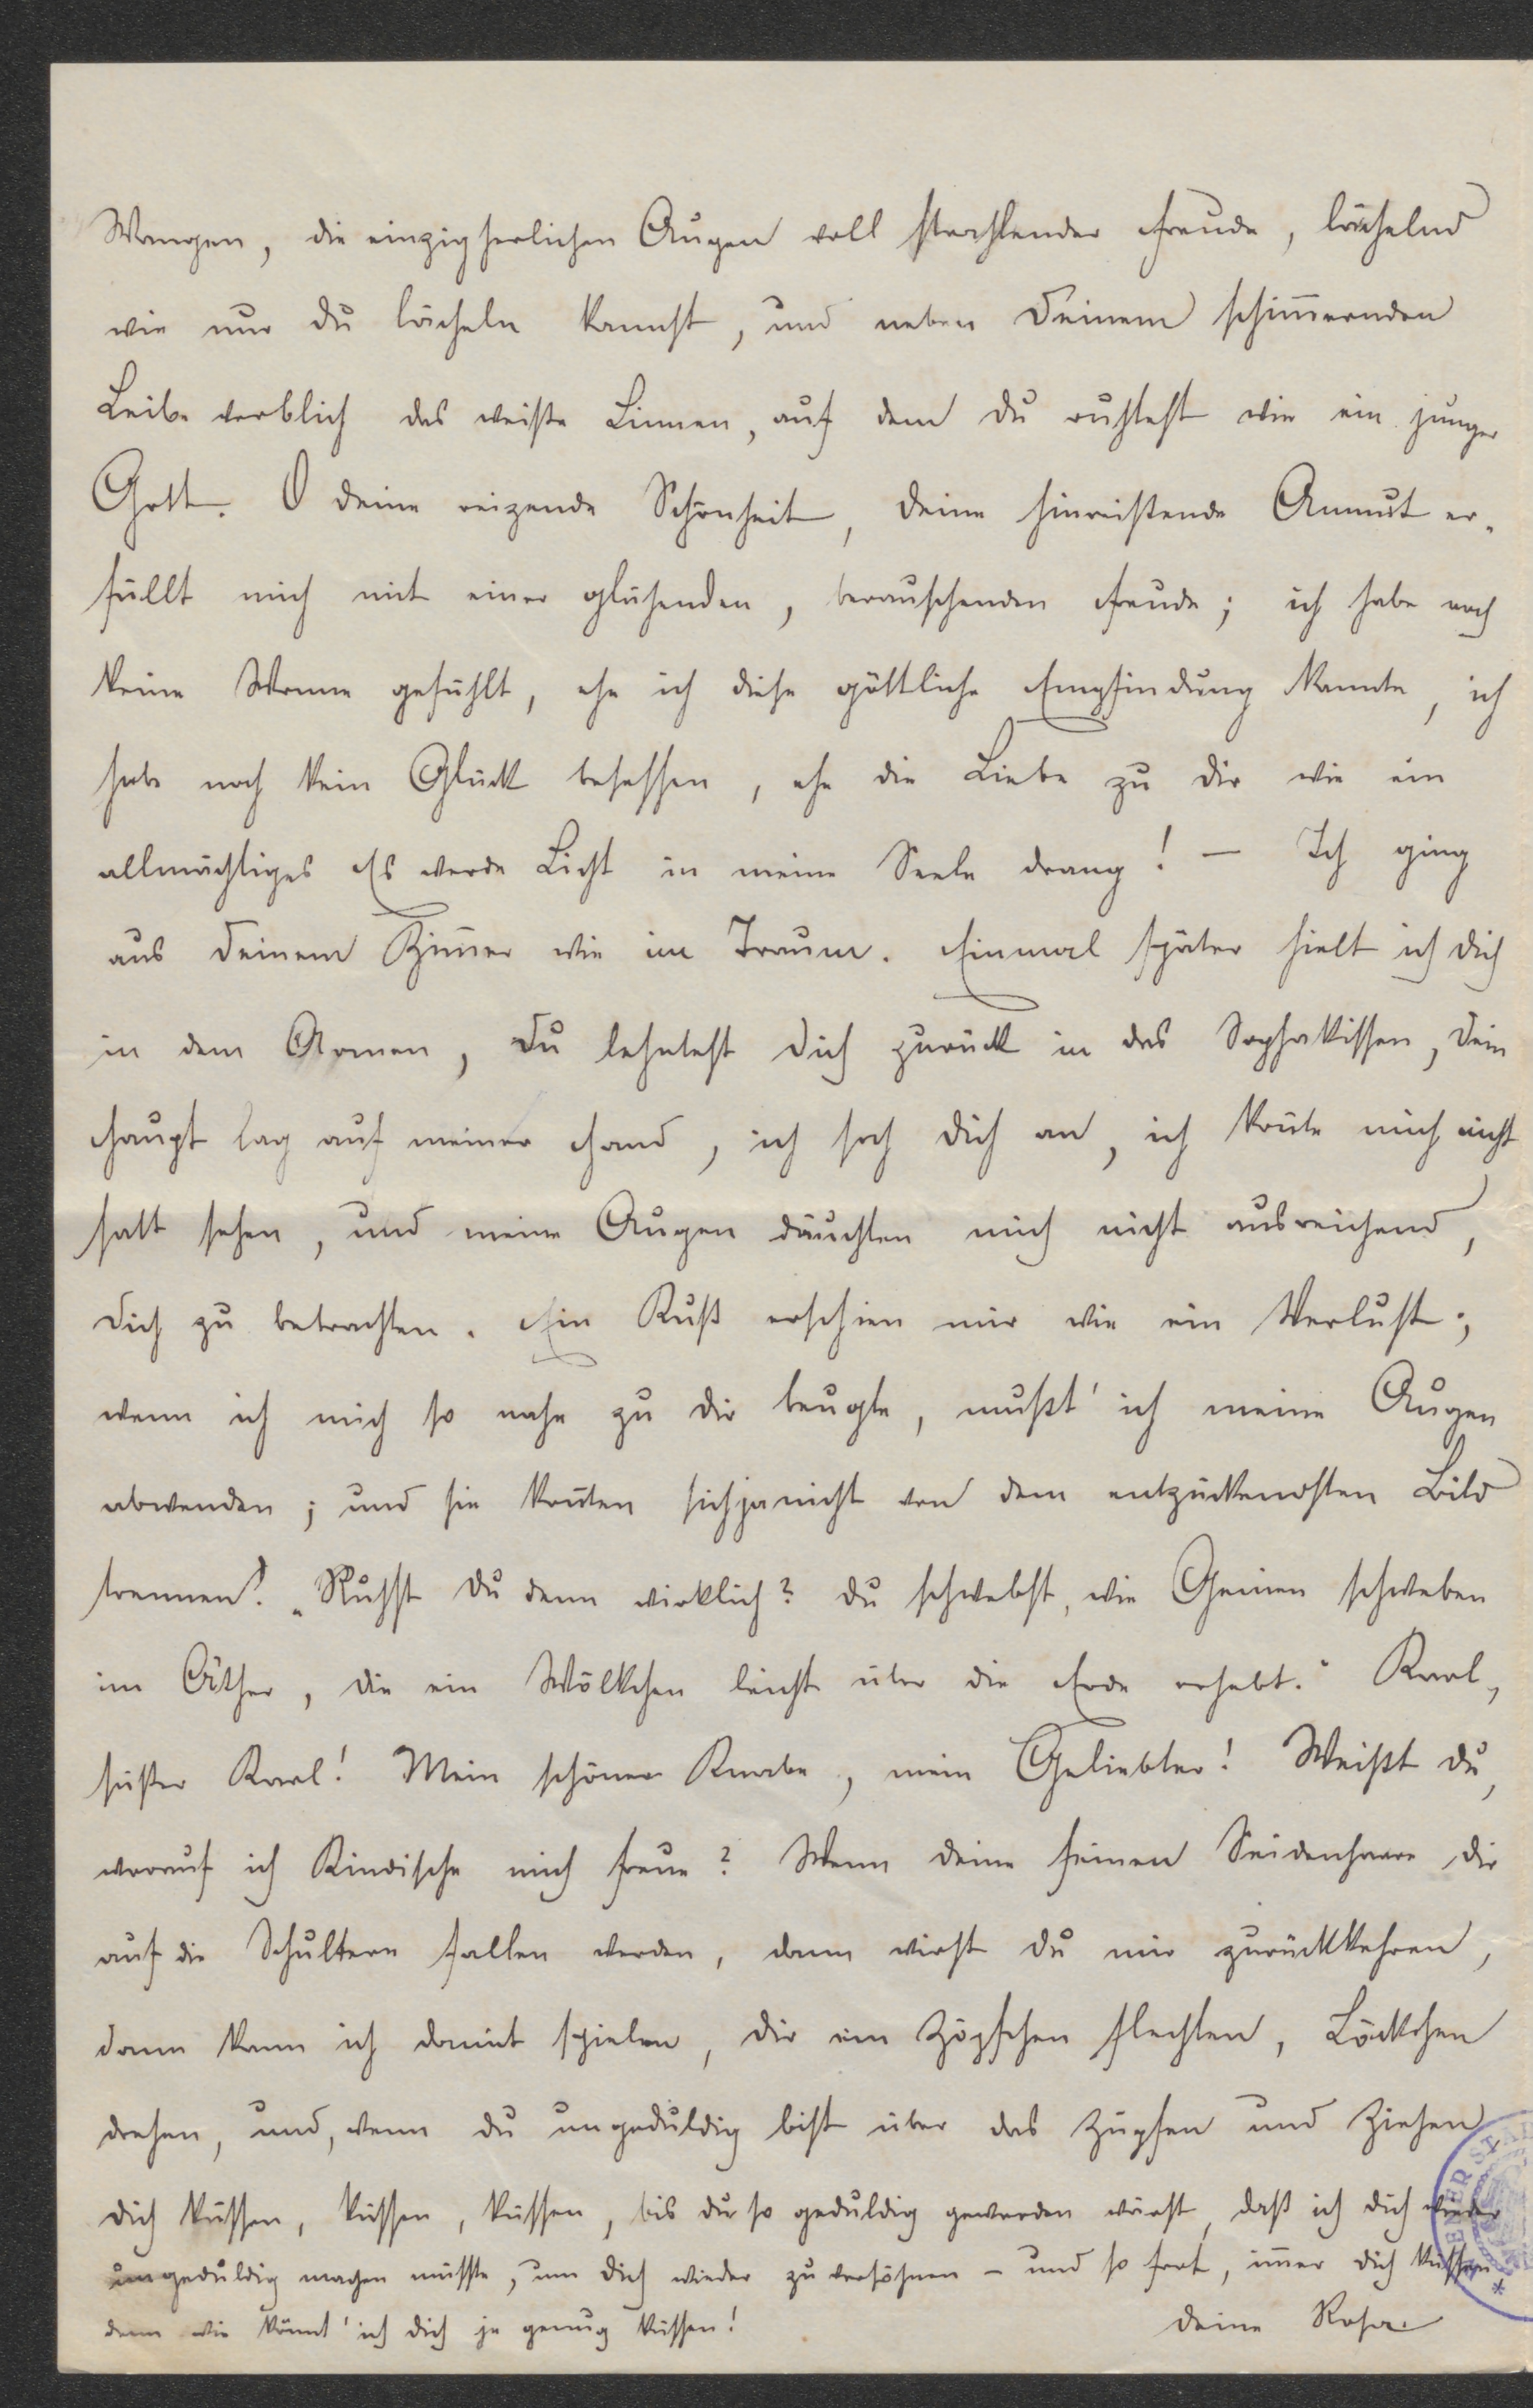 Wangen, die einzig herlichen Augen voll strahlender Freude, lächelnd
wie nur du lächeln kannst, und neben Deinem schim̄ernden
Leibe verblich das weiße Linnen, auf dem du ruhtest wie ein junger
Gott. O deine reizende Schönheit, deine hinreißende Anmut er-
füllt mich mit einer glühenden, berauschenden Freude; ich habe noch
keine Wonne gefühlt, ehe ich diese göttliche Empfindung kannte, ich
habe noch kein Glück besessen, ehe die Liebe zu dir wie ein
allmächtiges Es werde Licht in meine Seele drang! — Ich ging
aus Deinem Zim̄er wie im Traum. Einmal später hielt ich dich
in den Armen, Du lehntest Dich zurück in das Sophakissen, dein
Haupt lag auf meiner Hand, ich sah dich an, ich kon̄te mich nicht
satt sehen, und meine Augen däuchten mich nicht ausreichend,
Dich zu betrachten. Ein Kuß erschien mir wie ein Verlust;
wenn ich mich so nahe zu dir beugte, mußt' ich meine Augen
abwenden; und sie kon̄ten sich ja nicht von dem entzückendsten Bild
trennen! „Ruhst Du denn wirklich? du schwebst, wie Genien schweben
im Äther, die ein Wölkchen leicht über die Erde erhebt." Karl,
süßer Karl! Mein schöner Knabe, mein Geliebter! Weißt du,
worauf ich Kindische mich freue? Wenn deine feinen Seidenhaare dir
auf die Schultern fallen werden, dann wirst du mir zurückkehren,
dann kann ich damit spielen, dir ein Zöpfchen flechten, Löckchen
drehen, und, wenn du ungeduldig bist über das Zupfen und Ziehen
dich küssen, küssen, küssen, bis du so geduldig geworden wärst, daß ich dich wieder
ungeduldig machen müsste, um dich wieder zu versöhnen – und so fort, im̄er dich küssen
denn wie könnt' ich dich je genug küssen!
Deine Rosa.